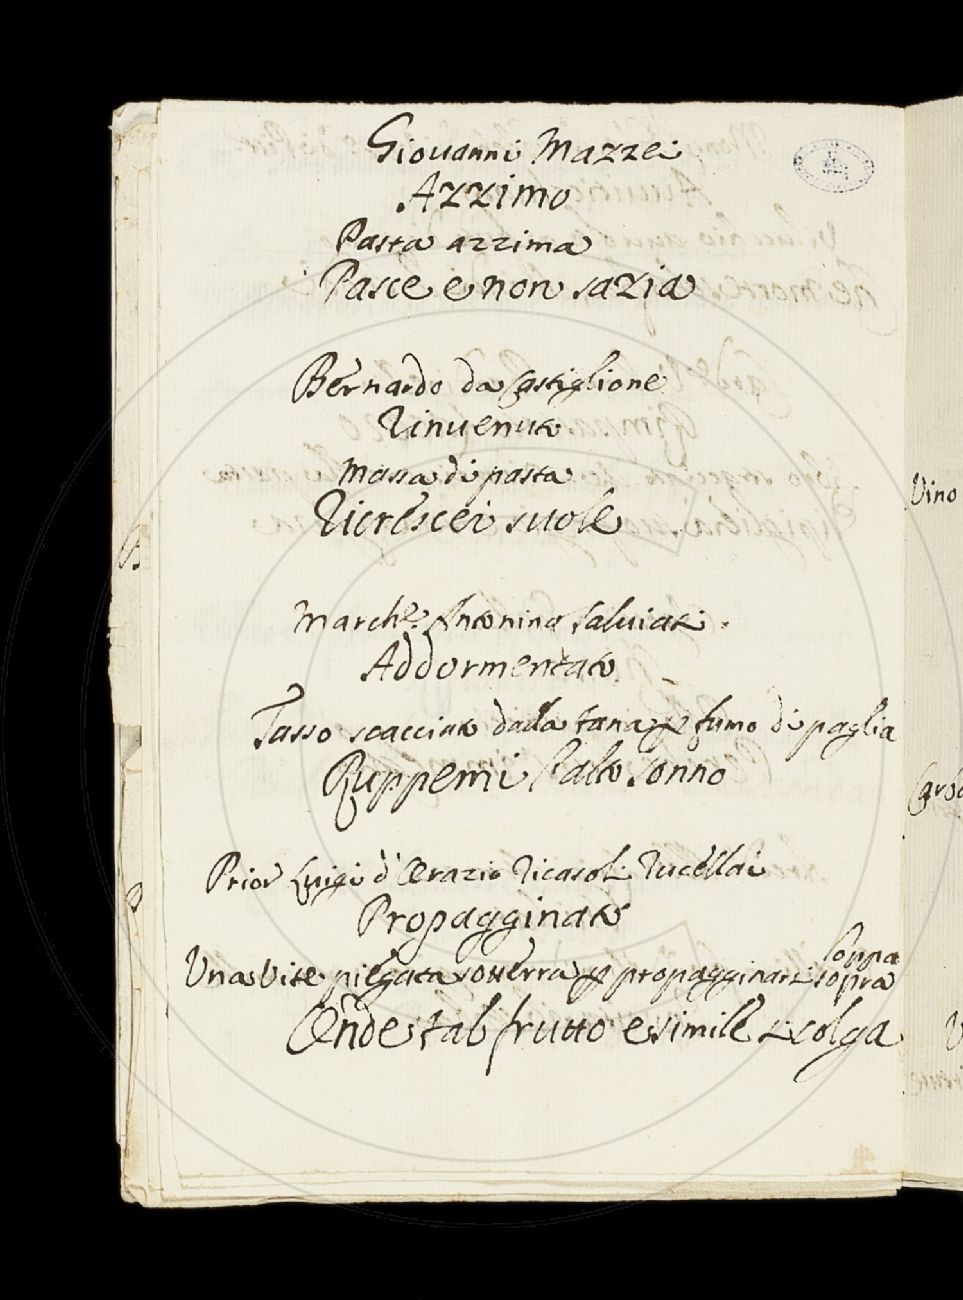 Giouanni Mazzei
Azzimo
Pasta azzima
Pasce e non sazia
Bernardo da Castiglione
Rinuenuto
Massa di pasta
Ricrescer suole
March.e Antonino Saluiati
Addormentato
Tasso scacciato dalla tana p fumo di paglia
Ruppemi l'alto sonno
Prior Luigi d'Orazio Ricasoli Rucellai
Propagginato
soppa
Una Vite piegata sotterra p propagginarsi sopra
Onde tal frutto e simile si colga
Vino